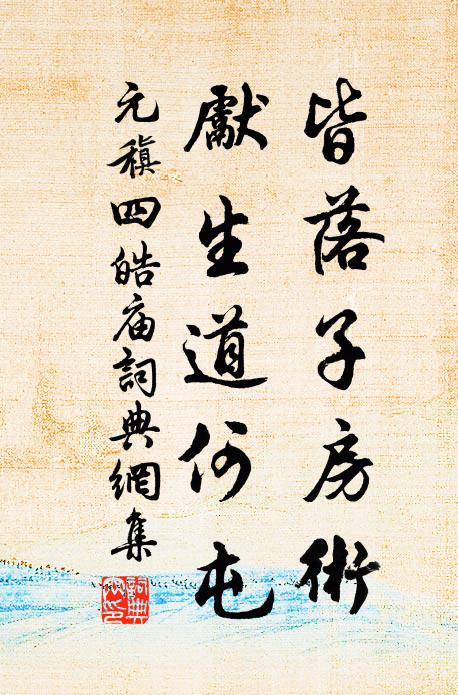 皆落子房術
獻生道何屯
元稹四皓庙詞典網集